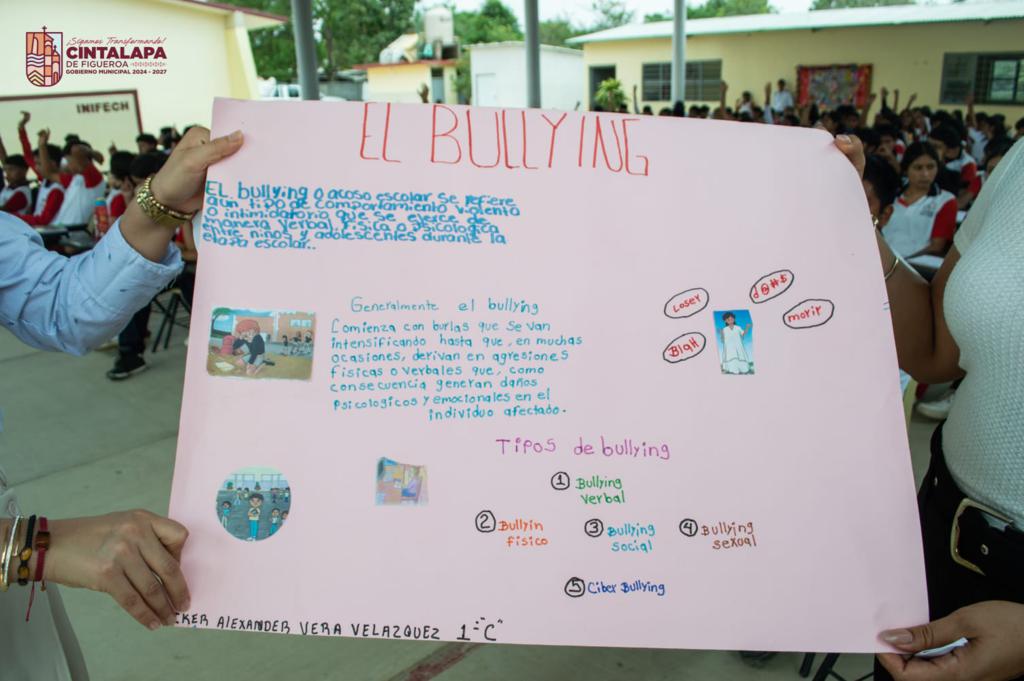 ¡Sigamos Transformando!
CINTALAPA
DE FIGUEROA
GOBIERNO MUNICIPAL 2024 - 2027
INIFECH
EL BULLYING
EL bullying o acoso escolar se refiere
a un tipo de comportamiento violento
o intimidatorio que se ejerce de
manera verbal, física o psicologica
entre niños y adolescentes durante la
etapa escolar..
Generalmente el bullying
Comienza con burlas que se van
intensificando hasta que, en muchas
ocasiones, derivan en agresiones
físicas o verbales que, como
consecuencia generan daños
psicologicos y emocionales en el
individuo afectado.
Loser
d@#$
morir
Blah
Tipos de bullying
1 Bullying
verbal
2 Bullyin
fisico
3 Bullying
social
4 Bullying
sexual
5 Ciber Bullying
CKER ALEXANDER VERA VELAZQUEZ 1-"C"